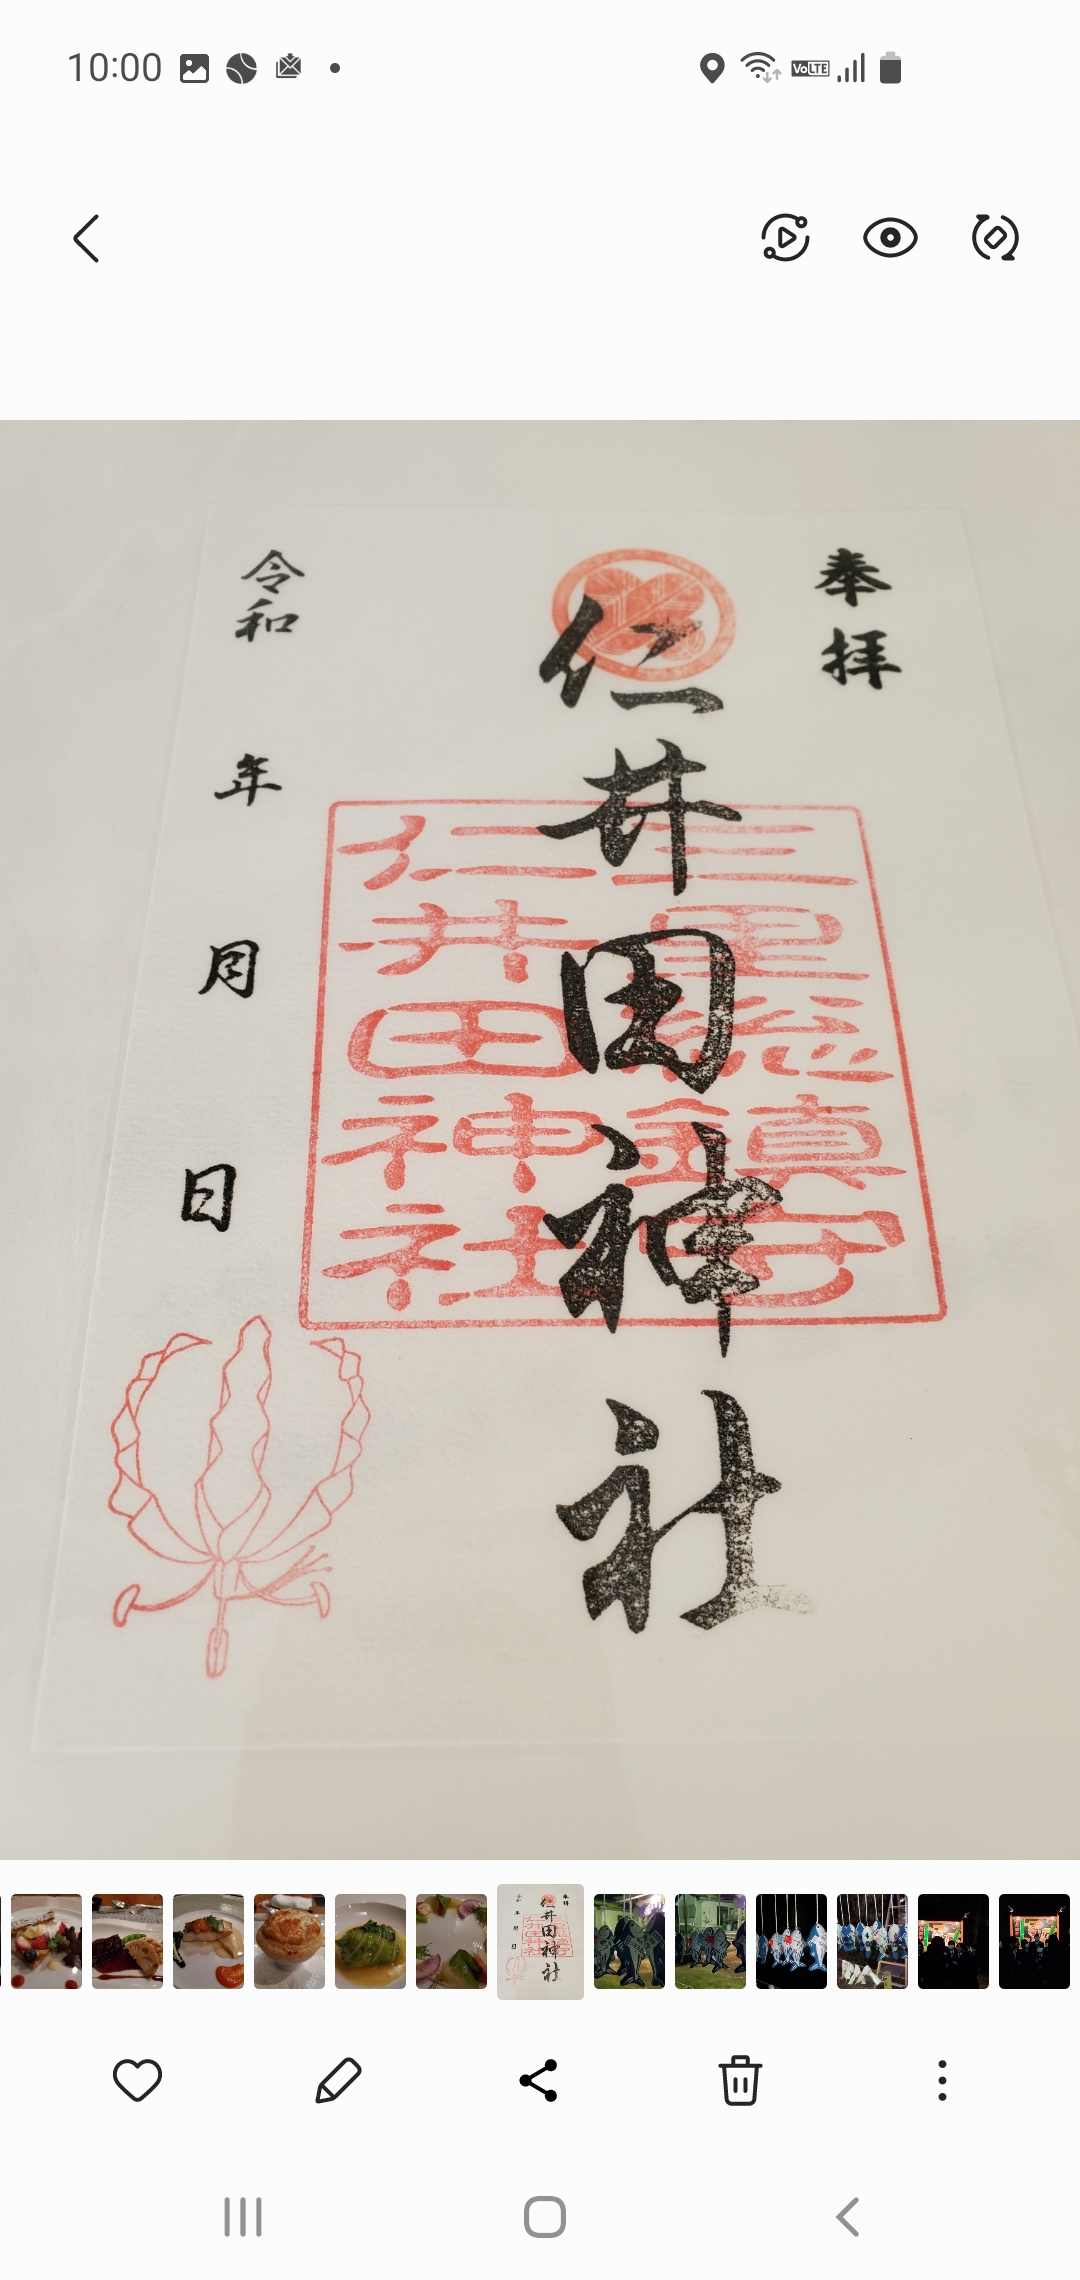 10:00
VoLTE
奉拝
仁井田神社
三里総鎮守
仁井田神社
令和 年 月 日